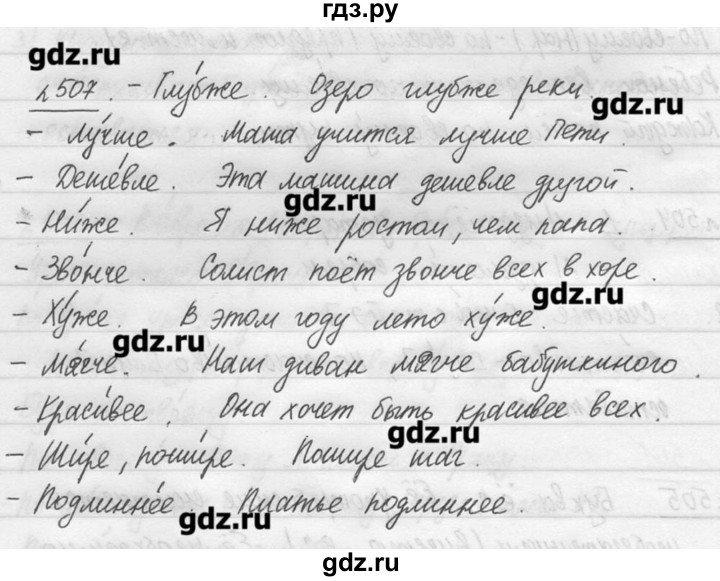 гдз.ру
gdz.ru
№507. - Глу́бже. Озеро глубже реки.
gdz.ru
- Лу́чше. Маша учится лучше Пети.
- Деше́вле. Эта машина дешевле другой.
gdz.ru
- Ни́же. Я ниже ростом, чем папа.
- Зво́нче. Солист поёт звонче всех в хоре.
gdz.ru
- Ху́же. В этом году лето ху́же.
gdz.ru
- Мя́гче. Наш диван мягче бабушкиного.
- Краси́вее. Она хочет быть красивее всех.
gdz.ru
- Ши́ре, поши́ре. Пошире шаг.
- Подлинне́е. Платье подлиннее.
gdz.ru
gdz.ru